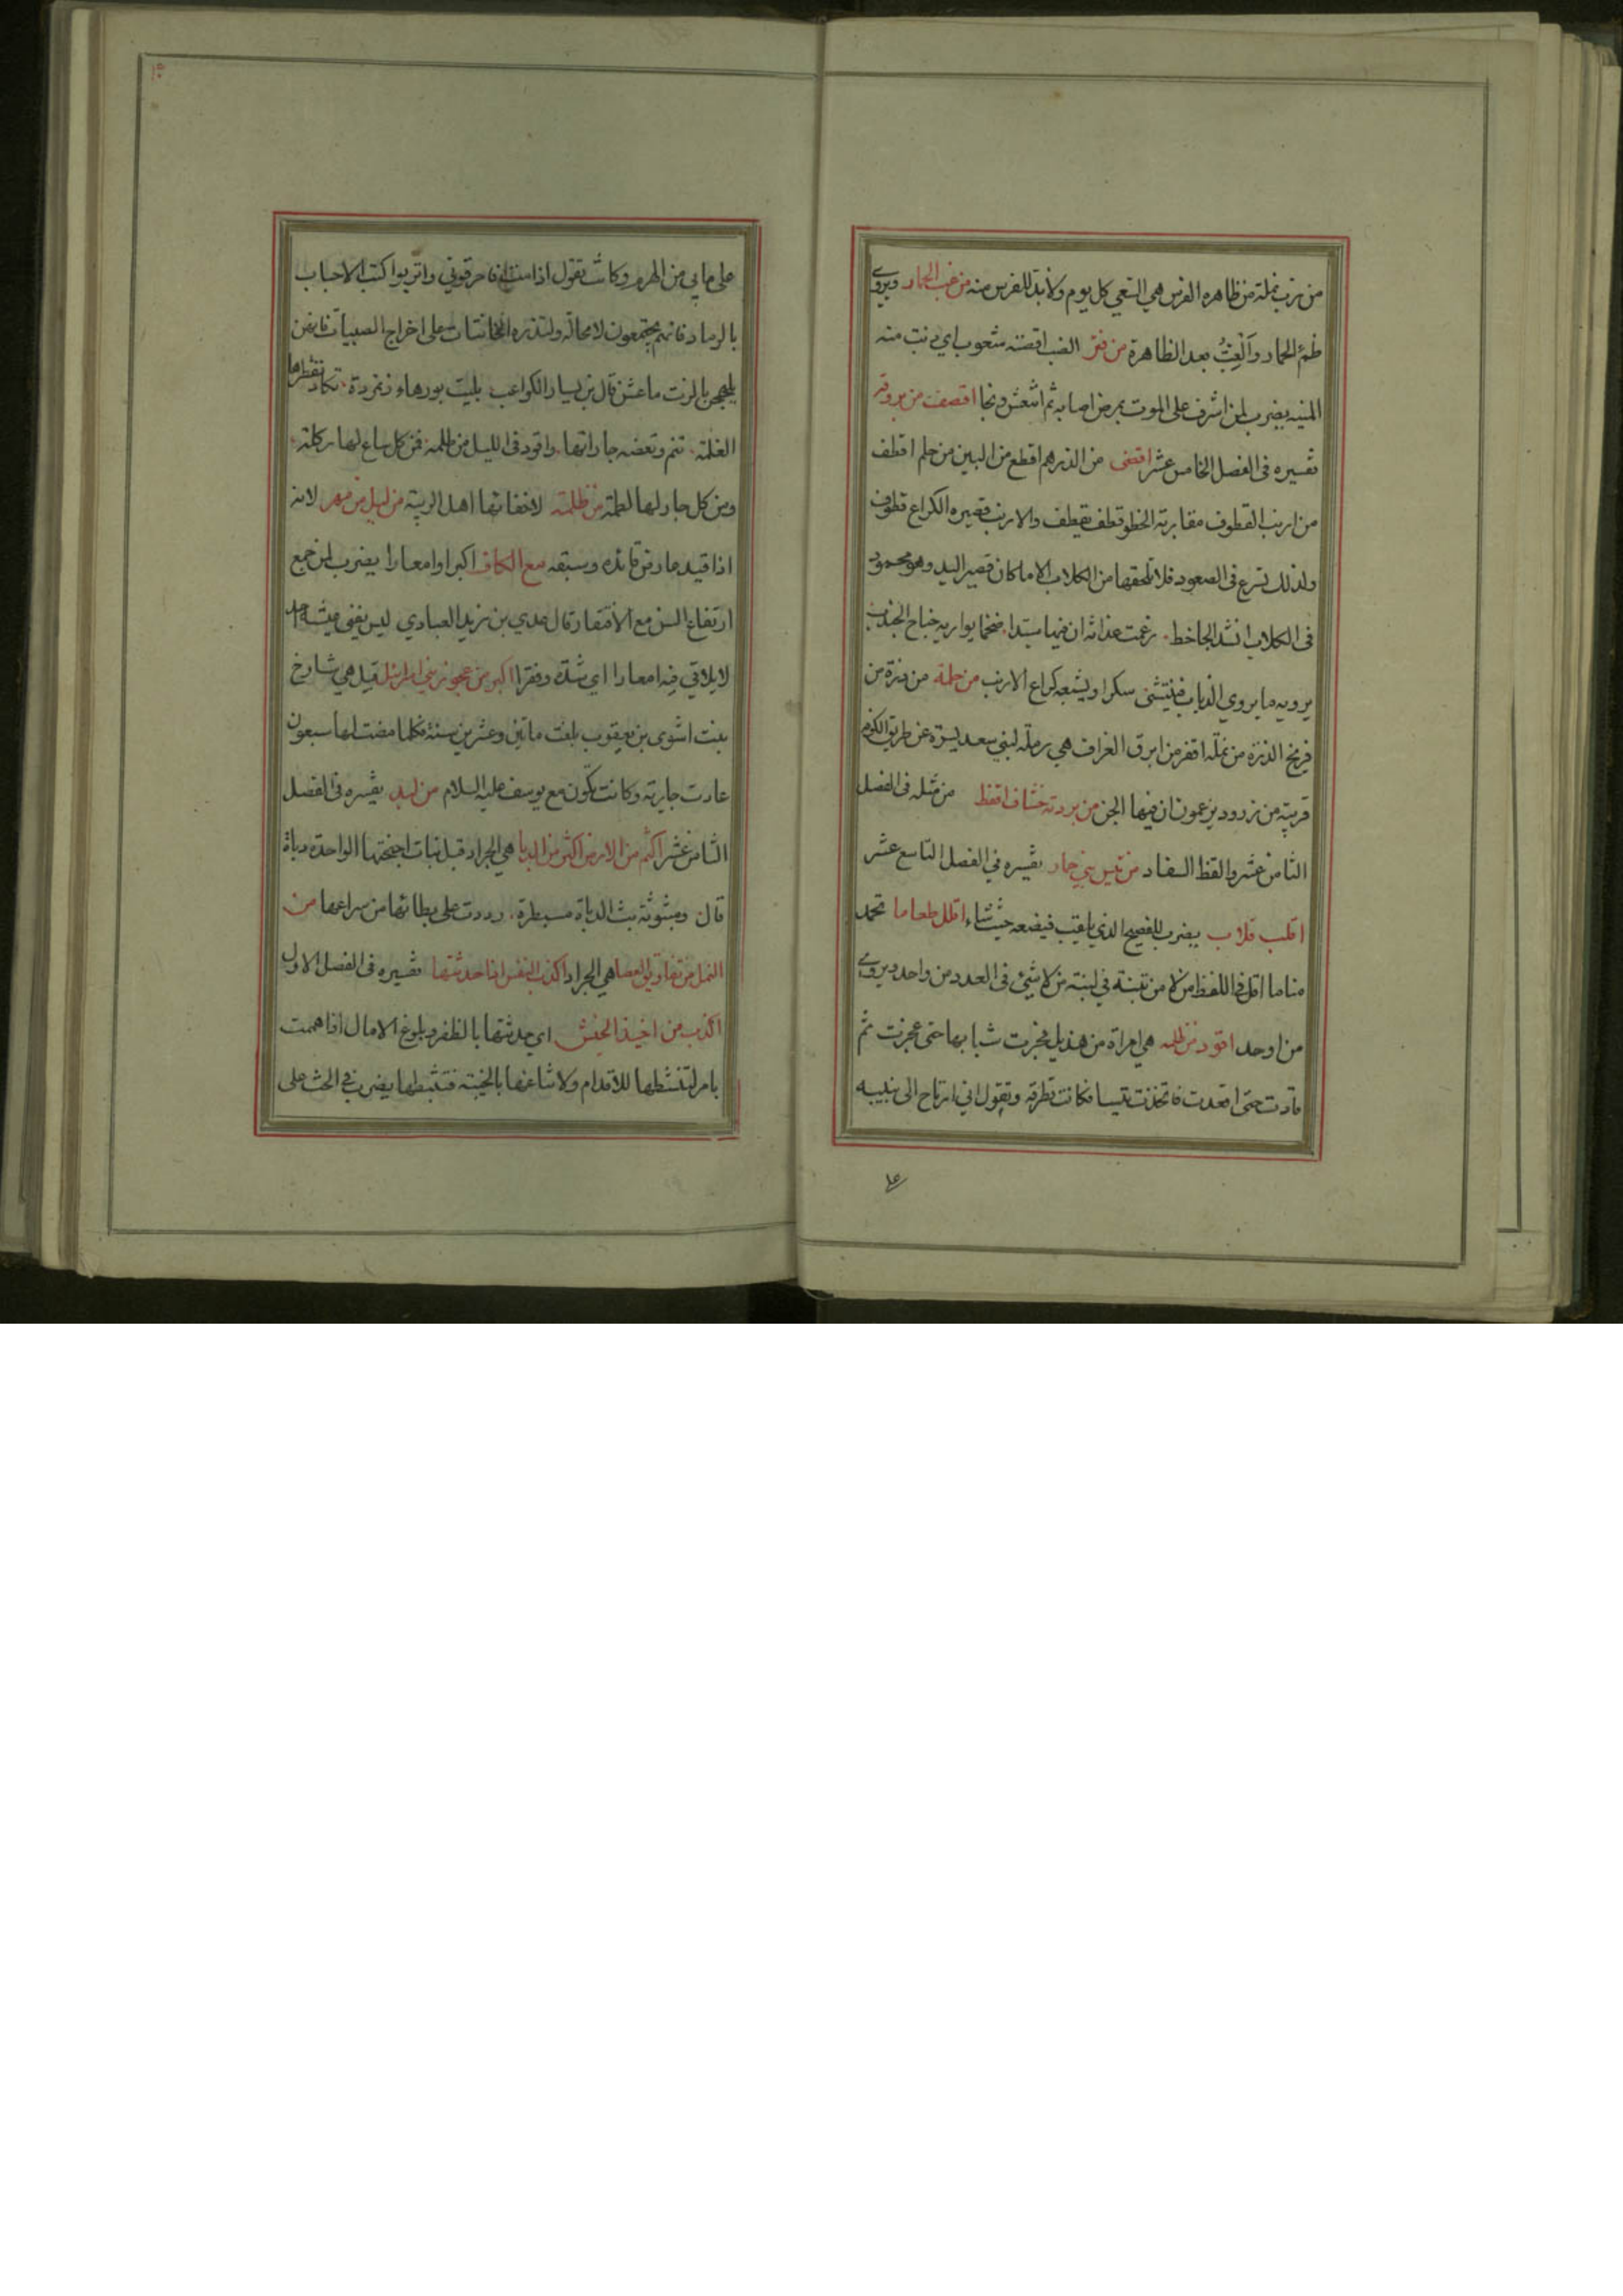 من زب نملة من ظاهره الفرس هي السقي كل يوم ولا بد للفرس منه من غب الحمار ويروى
ظمؤ الحمار والغِبُّ بعد الظاهرة من فتر الضب اقصته شعوب اي دنت منه
المنيه يضرب لمن اشرف على الموت بمرض اصابه ثم انتعش ونجا اقصف من بروقة
تفسيره فى الفصل الخامس عشر اقضى من الدرهم اقطع من البين من جلم اقطف
من ارنب القطوف مقاربة الخطو قطف يقطف والارنب قصيره الكراع قطوف
ولذلك تسرع فى الصعود فلا تلحقها من الكلاب الا ما كان قصير اليد وهو محمود
فى الكلاب انشد الجاحظ زعمت غدانة ان فيها سيدا ضخما يواريه جناح الجندب
يرويه ما يروي الذباب فينتشى سكرا ويشبعه كراع الارنب من حلمة من ذرة من
فريخ الذرة من نملة اقفر من ابرق العزاف هي رملة لبني سعد يسرة عن طريق الكوفة
قريبة من زرود يزعمون ان فيها الجن من بردته خشاف اقفط من مثله فى الفصل
الثامن عشر والقفط السفاد من تيس بني حمار تفسيره في الفصل التاسع عشر
اقلب قلاب يضرب للفصيح الذي يلقب فيضعه حيث شاء اقلل طعاما تحمد
مناما اقل فى اللفظ من لا من تبنة في لبنة من لا شيئ فى العدد من واحد ويروى
من اوحد اقود من ظلمه هي امراة من هذيل فجرت شبابها حتى عجزت ثم
قادت حتى اقعدت فاتخذت تيسا فكانت تطرقه وتقول اني ارتاح الى نبيبه
على ما بي من الهرم وكانت تقول اذا مت فاحرقوني واتربوا كتب الاحباب
بالرماد فانهم يجتمعون لا محالة ولتذره الخاتنات على اخراج الصبيات فانهن
يلهجن بالزنت ما عشن قال بن يسار الكواعب بليت بورهاء زنمردة تكاد تقطرها
الغلمة تنم وتعضه جاراتها واقود فى الليل من ظلمه فمن كل ساع لها ركلة
ومن كل جار لها لطمة من ظلمة لاخفائها اهل الريبة من ليل من مهر لانه
اذا قيد عارض قائده وسبقه مع الكاف اكبرا وامعارا يضرب لمن جمع
ارتفاع السن مع الافتقار قال عدي بن زيد العبادي ليس يفنى عيشه احد
لا يلاقي فيه امعارا اي شدة وفقرا اكبر من عجوز بني اسرائيل قيل هي شارخ
بنت اشوى بن يعقوب بلغت مائتين وعشرين سنة فكلما مضت لها سبعون
عادت جارية وكانت تكون مع يوسف عليه السلام من لبد تفسيره فى الفصل
الثامن عشر اكتم من الارض اكثر من الدبا هي الجراد قبل نبات اجنحتها الواحدة دباة
قال ومبثوثة بث الدباة مسبطرة رددت على بطائها من سراعها من
النمل من تفاريق العصا هي الجراد اكذب النفس اذا حدثتها تفسيره فى الفصل الاول
اكذب من اخيذ الجيش اي حدثتها بالظفر وبلوغ الامال اذا هممت
بامر لتنشطها للاقدام ولا تناغها بالخيبة فتثبطها يضرب في الحث على